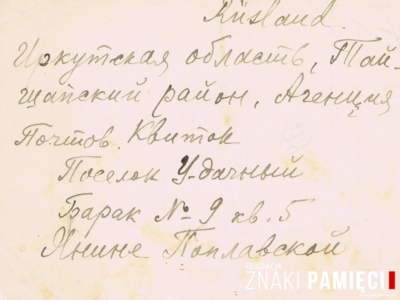 Rusland.
Иркутская область, Тай-
шатский район, Агенция
Почтов. Квиток
Поселок Удачный
Барак № 9 кв. 5
Янине Поплавской
FUNDACJA
ZNAKI PAMIĘCI